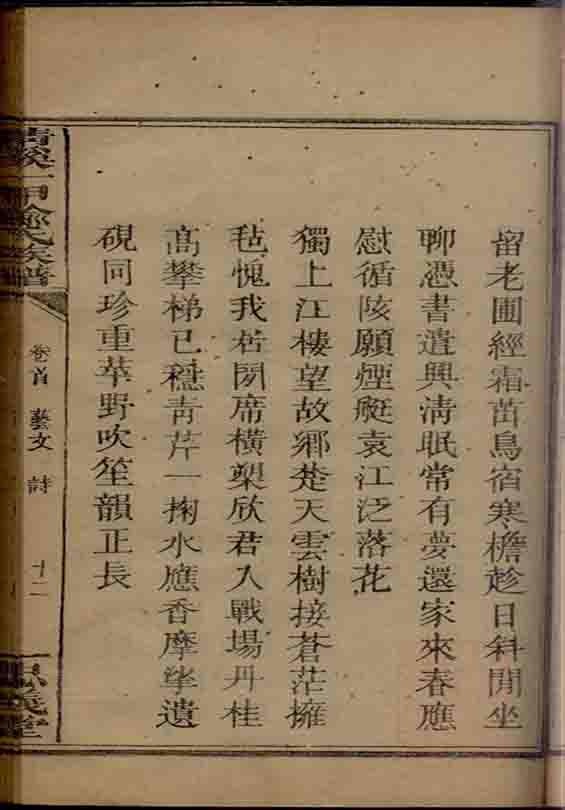 留老圃經霜茁鳥宿寒檐趁日斜閒坐
聊憑書遣興淸眠常有夢還家來春應
慰循陔願煙艇袁江泛落花
獨上江樓望故鄉楚天雲樹接蒼茫擁
毡愧我居閑席橫槊欣君入戰場丹桂
高攀梯已穩靑芹一掬水應香摩挲遺
硯同珍重苹野吹笙韻正長
族譜
卷首 藝文 詩 十二